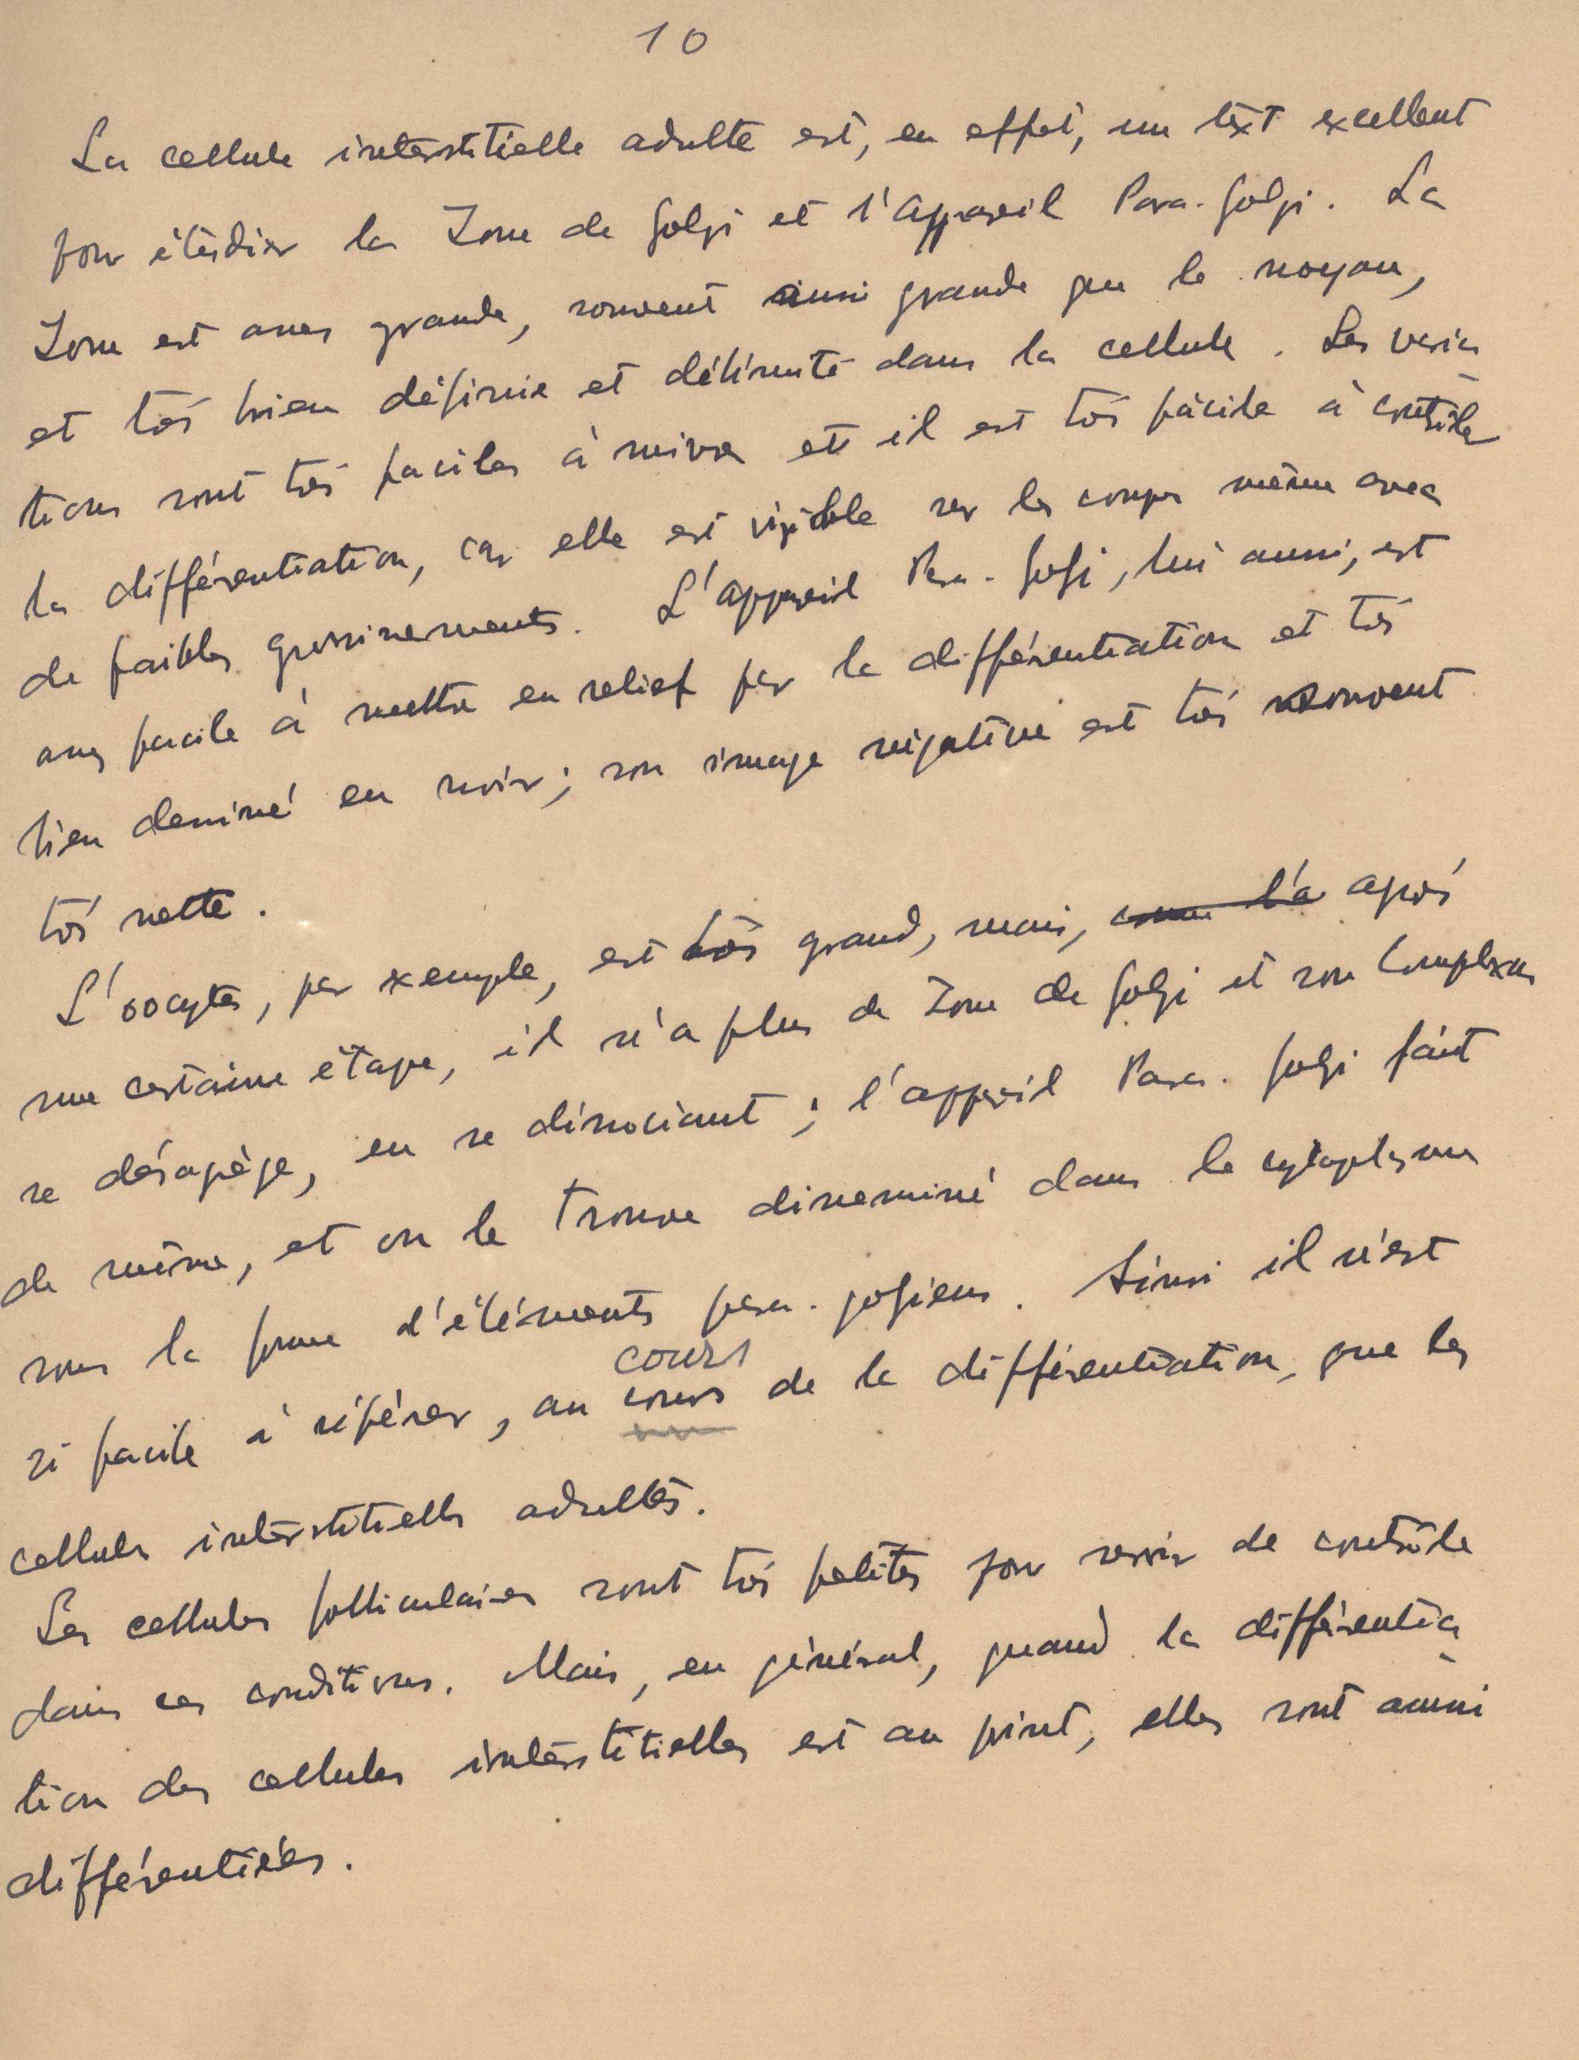 10
La cellule interstitielle adulte est, en effet, un text excellent
pour étudier la Zone de Golgi et l'appareil Para-Golgi. La
Zone est assez grande, souvent aussi grande que le noyau,
et très bien définie et délimité dans la cellule. Les varia
tions sont très faciles à suivre et il est très facile à contrôler
la différentiation, car elle est visible sur les coupes même avec
de faibles grossissements. L'appareil Para-Golgi, lui aussi, est
assez facile à mettre en relief par la différentiation et très
bien dessiné en noir; son image négative est très souvent
très nette.
L'oocyte, par exemple, est très grand, mais, après
une certaine étape, il n'a plus de Zone de Golgi et son Complexe
se désagrège, en se dissociant; l'appareil Para-Golgi fait
de même, et on le trouve disseminé dans le cytoplasme
sous la forme d'éléments para-golgiens. Ainsi il n'est
cours
si facile à repérer, au cours de la différentiation, que les
cellules interstitielles adultes.
Les cellules folliculaires sont très petites pour servir de contrôle
dans ces conditions. Mais, en général, quand la différentia
tion des cellules interstitielles est au point, elles sont aussi
différentiées.